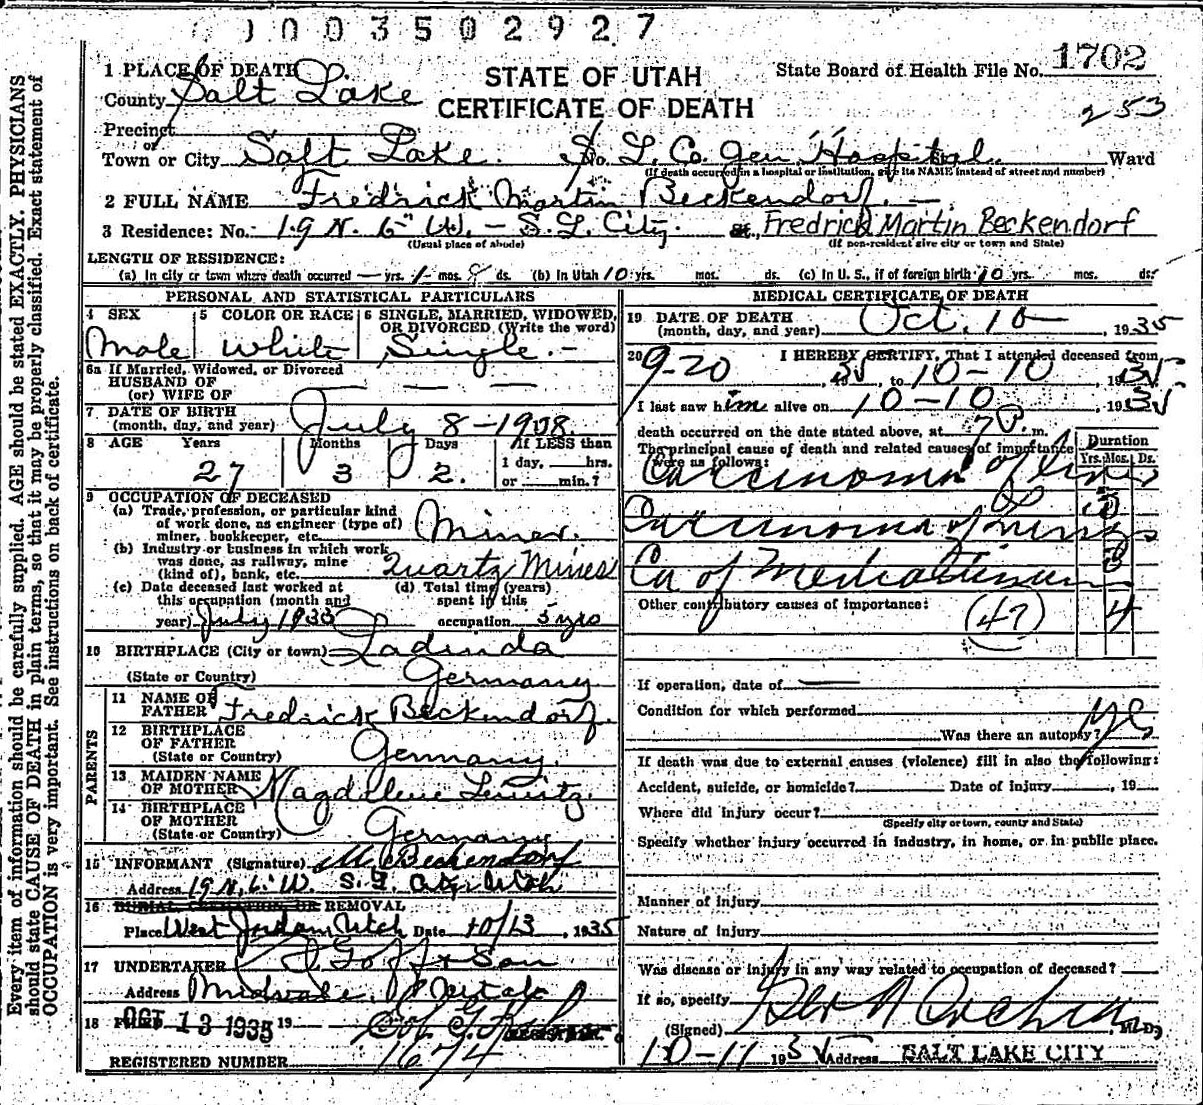 0 0 3 5 0 2 9 2 7
1702
253
STATE OF UTAH
CERTIFICATE OF DEATH
State Board of Health File No. 1702
1 PLACE OF DEATH
County Salt Lake
Precinct
or
Town or City Salt Lake. No. S. L. Co. Gen Hospital Ward
(If death occurred in a hospital or institution, give its NAME instead of street and number)
2 FULL NAME Fredrick Martin Beckendorf. —
3 Residence: No. 19 N. 6" W. – S. L. City. St., Fredrick Martin Beckendorf
(Usual place of abode) (If non-resident give city or town and State)
LENGTH OF RESIDENCE:
(a) In city or town where death occurred — yrs. 1 mos. 8 ds. (b) In Utah 10 yrs. mos. ds. (c) In U. S., if of foreign birth 10 yrs. mos. ds.
PERSONAL AND STATISTICAL PARTICULARS
4 SEX
Male
5 COLOR OR RACE
White
6 SINGLE, MARRIED, WIDOWED,
OR DIVORCED (Write the word)
Single. –
6a If Married, Widowed, or Divorced
HUSBAND OF
(or) WIFE OF
7 DATE OF BIRTH
(month, day, and year) July 8 – 1908
8 AGE Years Months Days If LESS than
27 3 2. 1 day, hrs.
or min.?
9 OCCUPATION OF DECEASED
(a) Trade, profession, or particular kind
of work done, as engineer (type of)
miner, bookkeeper, etc. Miner.
(b) Industry or business in which work
was done, as railway, mine
(kind of), bank, etc. Quartz Mines
(c) Date deceased last worked at
this occupation (month and
year) July 1933
(d) Total time (years)
spent in this
occupation 5 yrs
10 BIRTHPLACE (City or town)
(State or Country) Germany
PARENTS
11 NAME OF
FATHER Fredrick Beckendorf.
12 BIRTHPLACE
OF FATHER
(State or Country) Germany.
13 MAIDEN NAME
OF MOTHER Magdelene
14 BIRTHPLACE
OF MOTHER
(State or Country) Germany
15 INFORMANT (Signature) M. Beckendorf
Address 19 N. 6" W. S. L. City Utah
16 BURIAL, CREMATION, OR REMOVAL
Place West Jordan Utah Date 10/13, 1935
17 UNDERTAKER Goff & Son
Address Midvale, Utah
18 Filed OCT 13 1935 19
REGISTERED NUMBER 1674
MEDICAL CERTIFICATE OF DEATH
19 DATE OF DEATH
(month, day, and year) Oct. 10 – , 1935
20 I HEREBY CERTIFY, That I attended deceased from
9-20, 35, to 10–10, 1935
I last saw him alive on 10–10, 1935
death occurred on the date stated above, at 7 P. m.
The principal cause of death and related causes of importance
were as follows:
Duration
Yrs. Mos. Ds.
Carcinoma of
Carcinoma of
Ca of Mediastinum
Other contributory causes of importance:
(47)
4
If operation, date of —
Condition for which performed
Was there an autopsy? yes
If death was due to external causes (violence) fill in also the following:
Accident, suicide, or homicide? Date of injury , 19
Where did injury occur?
(Specify city or town, county and State)
Specify whether injury occurred in industry, in home, or in public place.
Manner of Injury
Nature of Injury
Was disease or injury in any way related to occupation of deceased?
If so, specify
(Signed) M. D.
10–11 1935 Address SALT LAKE CITY
Every item of information should be carefully supplied. AGE should be stated EXACTLY. PHYSICIANS
should state CAUSE OF DEATH in plain terms, so that it may be properly classified. Exact statement of
OCCUPATION is very important. See instructions on back of certificate.